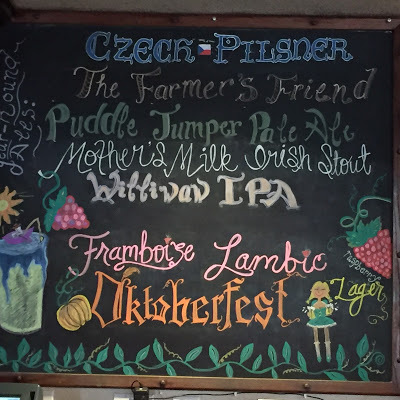 Year-round
Ales:
Czech Pilsner
The Farmer's Friend
Puddle Jumper Pale Ale
Mother's Milk Irish Stout
Williwaw IPA
Framboise Lambic
Raspberry
Oktoberfest
Lager